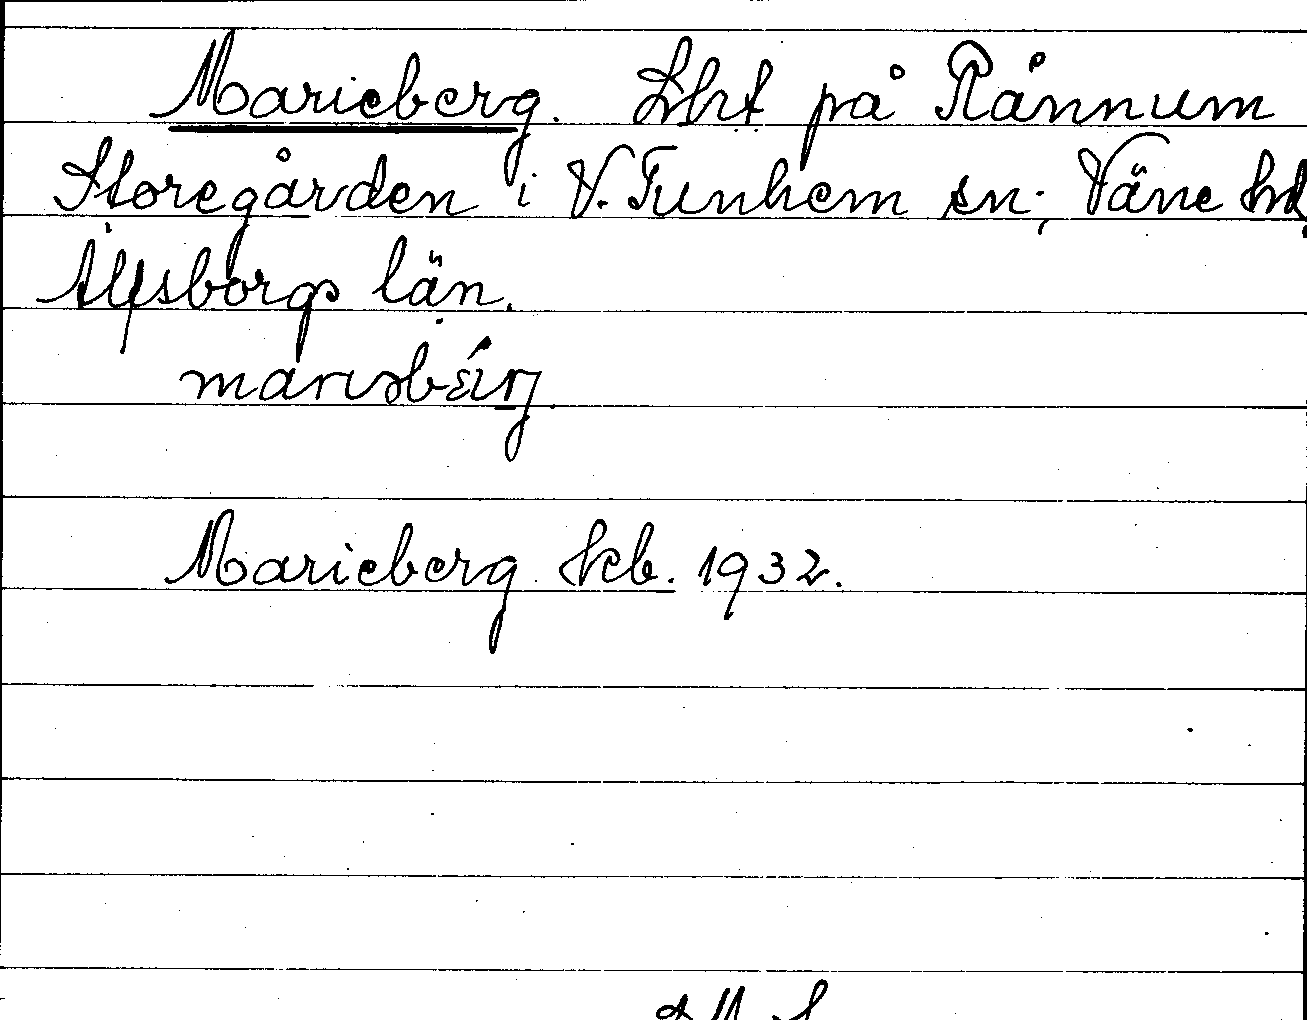 Marieberg. Lht på Rånnum
Storegården i V. Tunhem sn; Väne hd,
Älfsborgs län.
Marieberg kb. 1932.